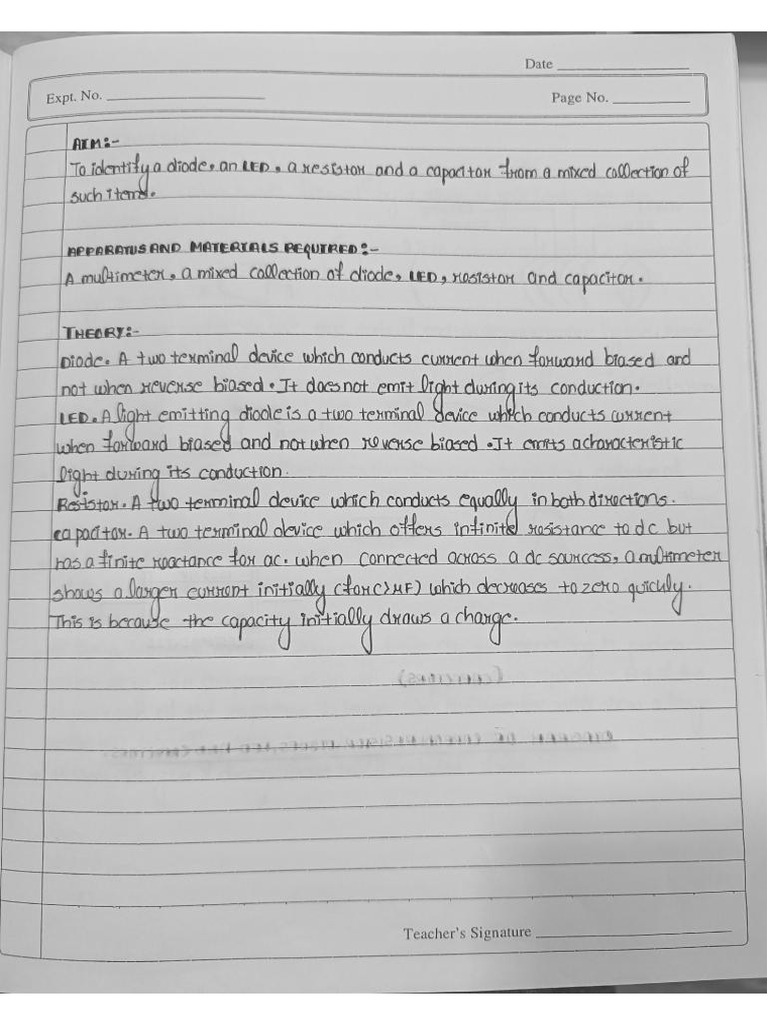 Date
Expt. No.
Page No.
AIM:-
To identify a diode, an LED, a resistor and a capacitor from a mixed collection of
such items.
APPARATUS AND MATERIALS REQUIRED:-
A multimeter, a mixed collection of diode, LED, resistor and capacitor.
THEORY:-
Diode. A two terminal device which conducts current when forward biased and
not when reverse biased. It does not emit light during its conduction.
LED. A light emitting diode is a two terminal device which conducts current
when forward biased and not when reverse biased. It emits a characteristic
light during its conduction.
Resistor. A two terminal device which conducts equally in both directions.
capacitor. A two terminal device which offers infinite resistance to dc but
has a finite reactance for ac. when connected across a dc sourcess, a multimeter
shows a larger current initially (for C>μF) which decreases to zero quickly.
This is because the capacity initially draws a charge.
Teacher's Signature